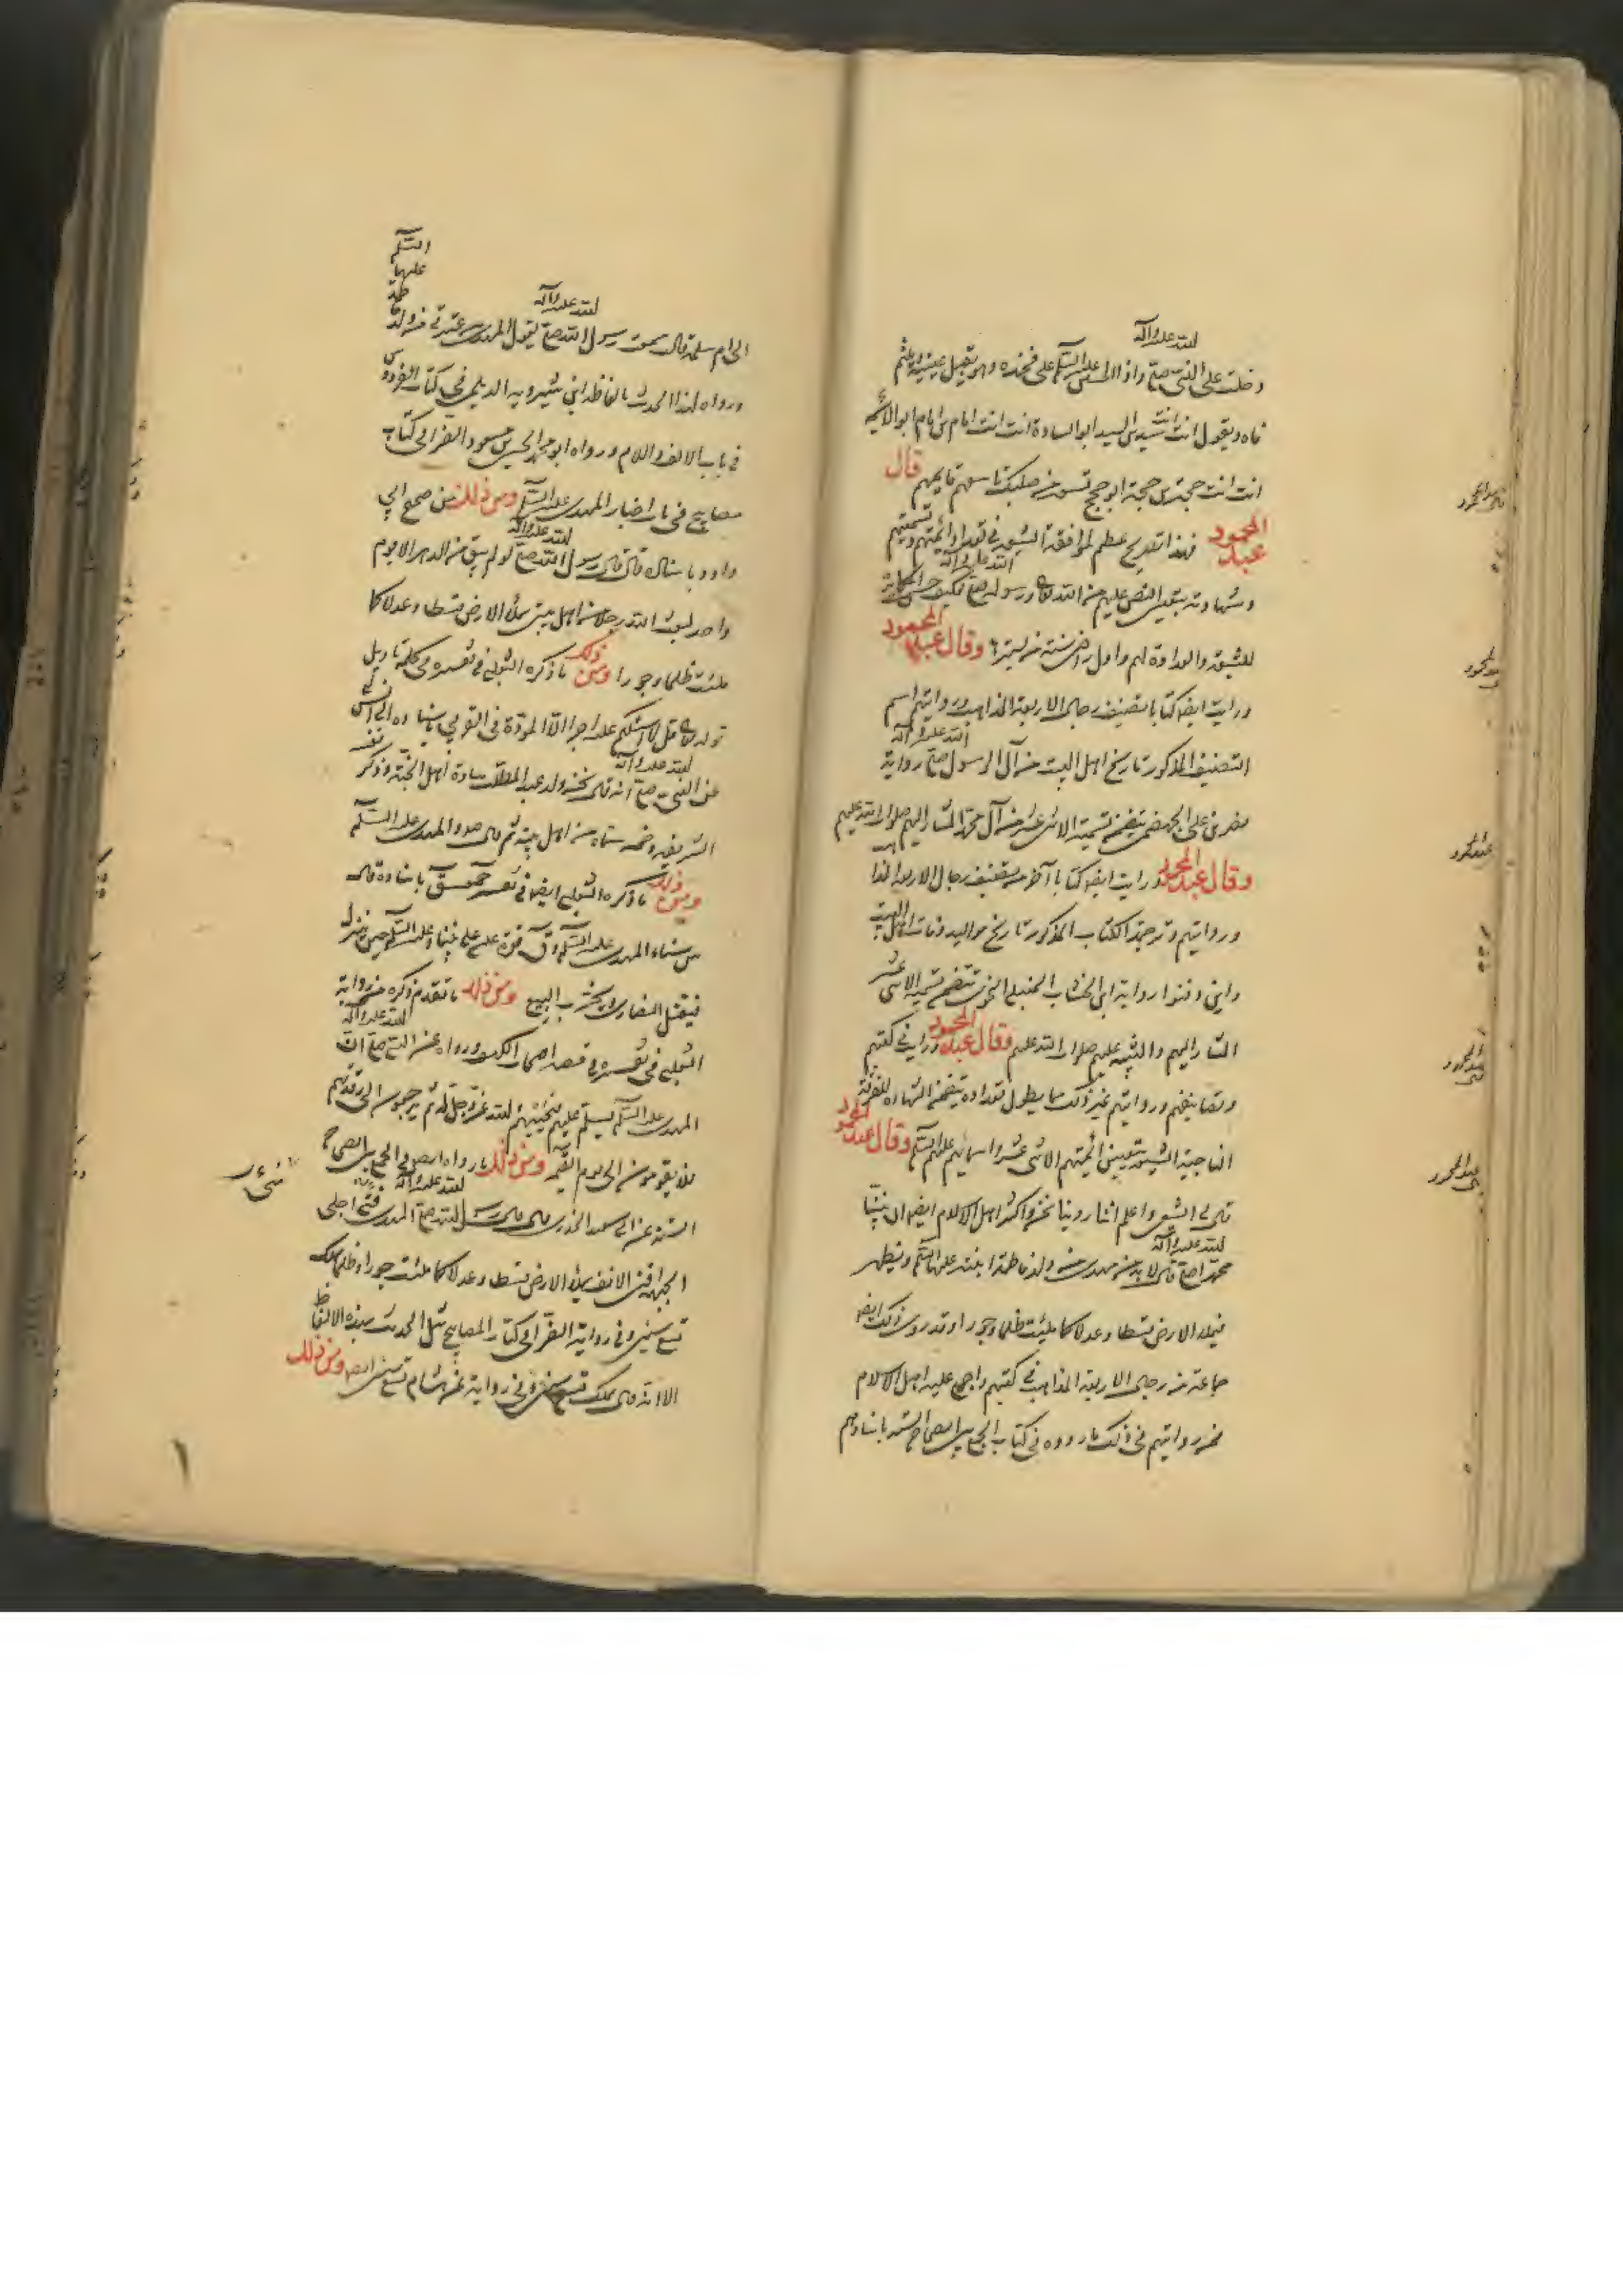 دخلت على النبي صلى الله عليه وآله واذا الحسين عليه السلم على فخذه وهو يقبل عينيه ويلثم
فاه ويقول انت سيد بن السيد ابو السادة انت انت امام بن امام ابو الائمة
انت انت حجة بن حجة ابو حجج تسعة من صلبك تاسعهم قايمهم قال
عبد المحمود فهذا تصريح عظيم لموافقة الشيعة في تعداد ائمتهم وتسميتهم
وشهادته بتعيين النص عليهم من الله تعالى ورسوله صلى الله عليه وآله فكيف حسن المكابرة
للشيعة والعداوة لهم واول راض سنة من يسيرها وقال عبد المحمود
ورايت ايضا كتابا تصنيف رجال الاربعة المذاهب ورواتهم اسم
التصنيف المذكور تاريخ اهل البيت من آل الرسول صلى الله عليه وآله رواية
نصر بن علي الجهضمي يتضمن تسمية الاثنى عشر من آل محمد المشار اليهم صلوات الله عليهم
وقال عبد المحمود ورايت ايضا كتابا آخر من تصنيف رجال الاربعة المذاهب
ورواتهم وترجمة الكتاب المذكور تاريخ مواليد ووفات اهل البيت
واين دفنوا رواية ابن الخشاب الحنبلي النحوي تتضمن تسمية الاثنى عشر
المشار اليهم والتنبيه عليهم صلوات الله عليهم وقال عبد المحمود ورايت في كتبهم
وتصانيفهم ورواتهم غير ذلك مما يطول تعداده يتضمن الشهادة للفرقة
الناجية الشيعة بتعيين ائمتهم الاثنى عشر واسمائهم عليهم السلم وقال عبد المحمود
قال لي الشيعي واعلم اننا روينا نحن واكثر اهل الاسلام ايضا ان نبينا
محمدا صلى الله عليه وآله قال لا بد من مهدي من ولد فاطمة ابنته عليها السلم ويظهر
فيملأ الارض قسطا وعدلا كما ملئت ظلما وجورا وقد روى ذلك ايضا
جماعة من رجال الاربعة المذاهب في كتبهم واجمع عليه اهل الاسلام
فمن رواياتهم في ذلك ما رووه في كتاب الجمع بين الصحاح الستة باسنادهم
الى ام سلمة قالت سمعت رسول الله صلى الله عليه وآله يقول المهدي من عترتي من ولد فاطمة عليها السلم
وروى هذا الحديث بالفاظه ابن شيرويه الديلمي في كتاب الفردوس
في باب الالف واللام ورواه ابو محمد الحسين بن مسعود الفراء في كتاب
مصابيح في باب اخبار المهدي عليه السلم ومن ذلك من صحيح ابي
داود باسناده قال قال رسول الله صلى الله عليه وآله لو لم يبق من الدهر الا يوم
واحد لبعث الله رجلا من اهل بيتي يملأ الارض قسطا وعدلا كما
ملئت ظلما وجورا ومن ذلك ما ذكره الثعلبي في تفسيره في تاويل
قوله تعالى قل لا اسئلكم عليه اجرا الا المودة في القربى باسناده الى انس
عن النبي صلى الله عليه وآله انه قال نحن ولد عبد المطلب سادة اهل الجنة وذكر نفسه
الشريفة وخمسة ستاه من اهل بيته ثم قال والمهدي عليه السلم
ومن ذلك ما ذكره الثعلبي ايضا في تفسير حمعسق باسناده قال
س سناء المهدي عليه السلم وق قوة عيسى على نبينا وعليه السلم حين ينزل
فيقتل النصارى ويخرب البيع ومن ذلك ما تقدم ذكره من رواية
الثعلبي في تفسيره في قصة اصحاب الكهف ورواه عن النبي صلى الله عليه وآله ان
المهدي عليه السلم يسلم عليهم فيحييهم الله عز وجل له ثم يرجعون الى رقدتهم
فلا يقومون الى يوم القيمة ومن ذلك ما رواه ايضا في الجمع بين الصحاح
الستة عن ابي سعيد الخدري قال قال رسول الله صلى الله عليه وآله المهدي فتى اجلى
الجبهة اقنى الانف يملأ الارض قسطا وعدلا كما ملئت جورا وظلما يملك
تسع سنين وفي رواية الفراء في كتاب المصابيح مثل الحديث بهذه الالفاظ
الا انه قال يملك سبع سنين وفي رواية عن هشام تسع سنين ايضا ومن ذلك